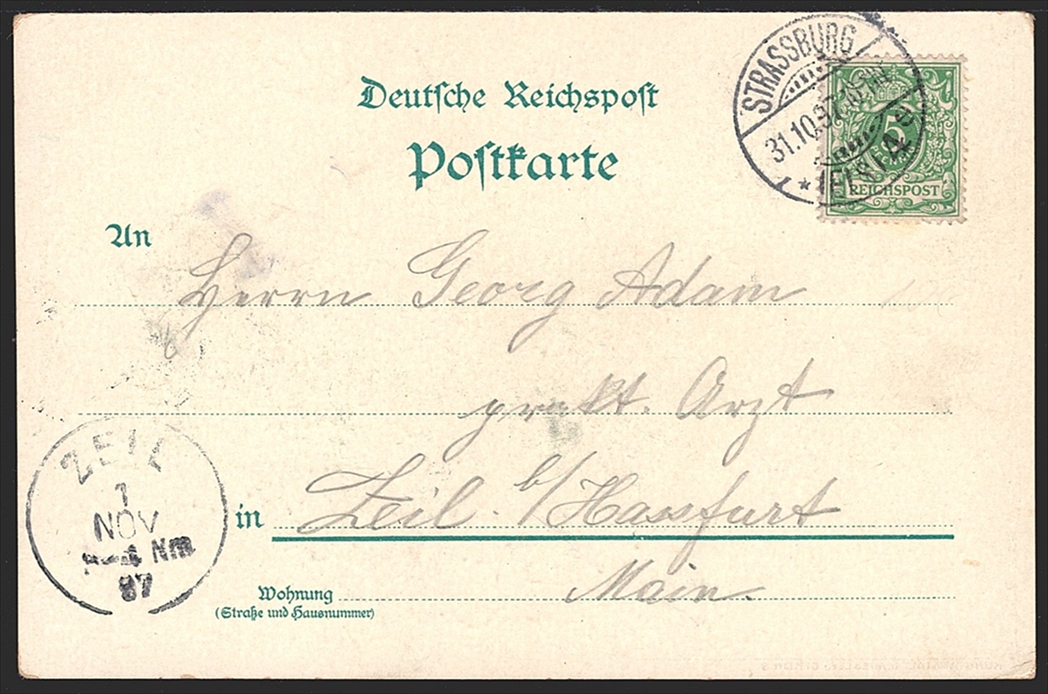 Deutsche Reichspost
Postkarte
STRASSBURG
31.10.97
* (ELS.)
5
REICHSPOST
An
Herrn Georg Adam
prakt. Arzt
in Zeil. b/Hassfurt
Wohnung Main.
(Straße und Hausnummer)
ZEIL
1
NOV
4 Nm
97